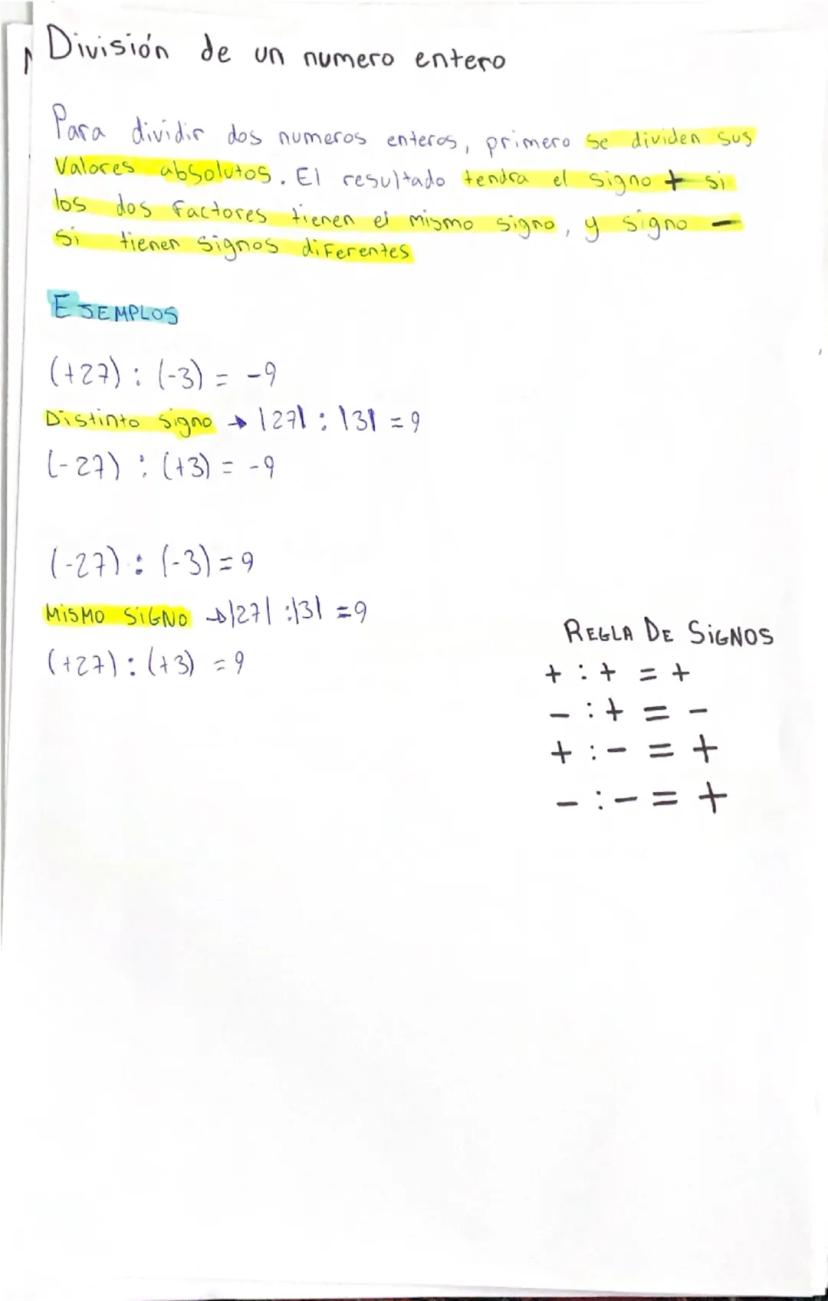 División de un numero entero
Para dividir dos numeros enteros, primero se dividen sus
Valores absolutos. El resultado tendra el signo + si
los dos factores tienen el mismo signo, y signo -
si tienen signos diferentes
EJEMPLOS
(+27) : (-3) = -9
Distinto signo → |27| : |3| = 9
(-27) : (+3) = -9
(-27) : (-3) = 9
MISMO SIGNO → |27| : |3| = 9
(+27) : (+3) = 9
REGLA DE SIGNOS
+ : + = +
- : + = -
+ : - = +
- : - = +